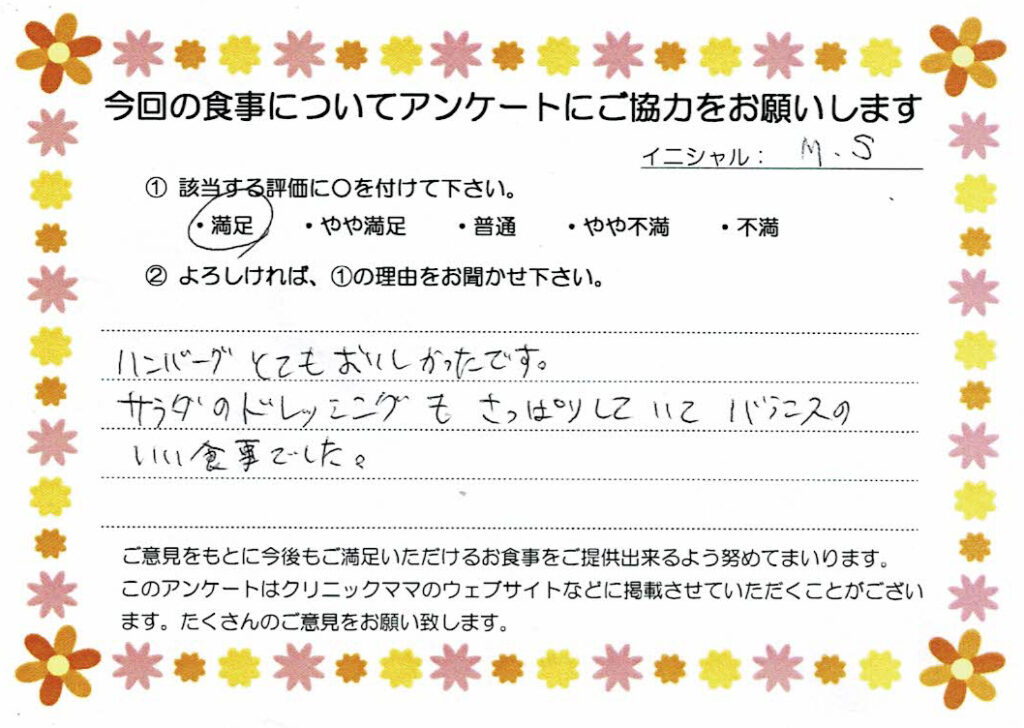 今回の食事についてアンケートにご協力をお願いします
イニシャル： M.S
① 該当する評価に〇を付けて下さい。
・満足 ・やや満足 ・普通 ・やや不満 ・不満
② よろしければ、①の理由をお聞かせ下さい。
ハンバーグとてもおいしかったです。
サラダのドレッシングも さっぱりしていて バランスの
いい食事でした。
ご意見をもとに今後もご満足いただけるお食事をご提供出来るよう努めてまいります。
このアンケートはクリニックママのウェブサイトなどに掲載させていただくことがござい
ます。たくさんのご意見をお願い致します。